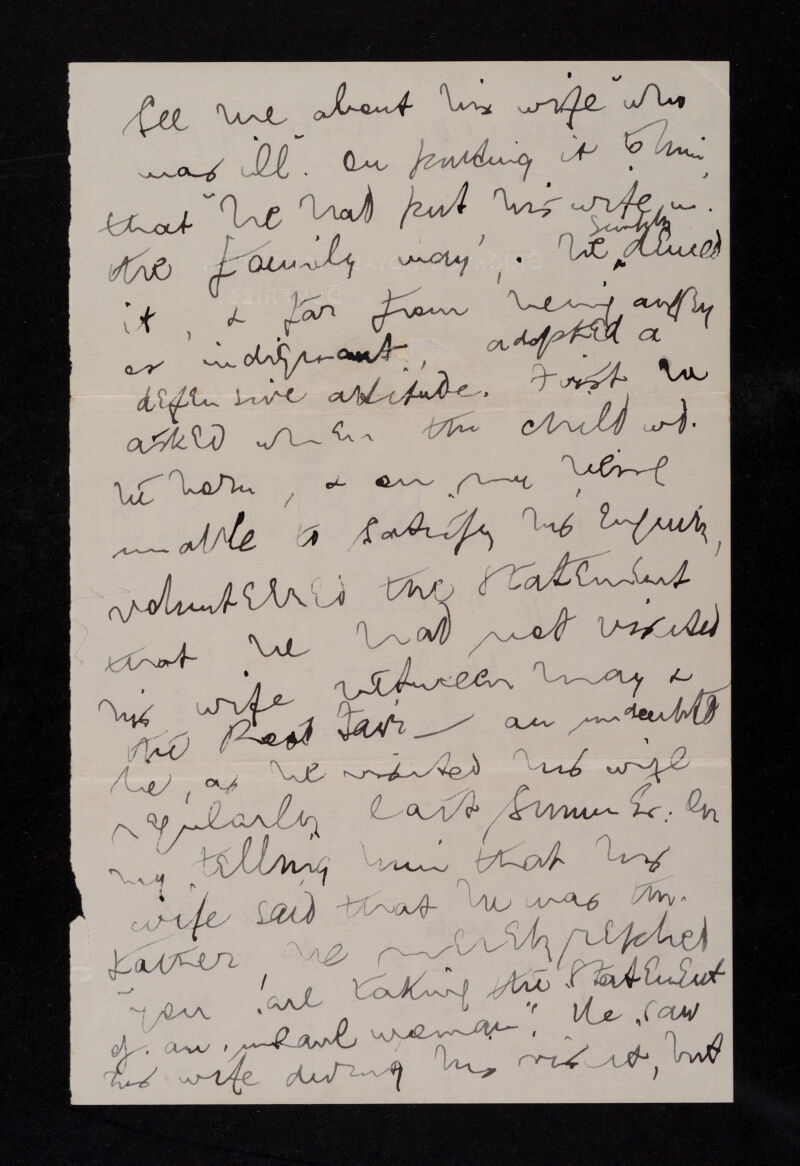 See me about his wife "who
was ill". On putting it to him,
that "he had put his wife in
the family way", he simply denied
it, & far from being angry
or indignant, adopted a
defensive attitude. First he
asked when the child wd.
be born, & on my being
unable to satisfy his enquiry,
volunteered the statement
that he had not visited
his wife between May &
the Rood Fair — an undoubted
lie, as he visited his wife
regularly last summer. On
my telling him that his
wife said that he was the
father, he merely replied
"you are taking the statement
of an insane woman". He saw
his wife during his visit, but